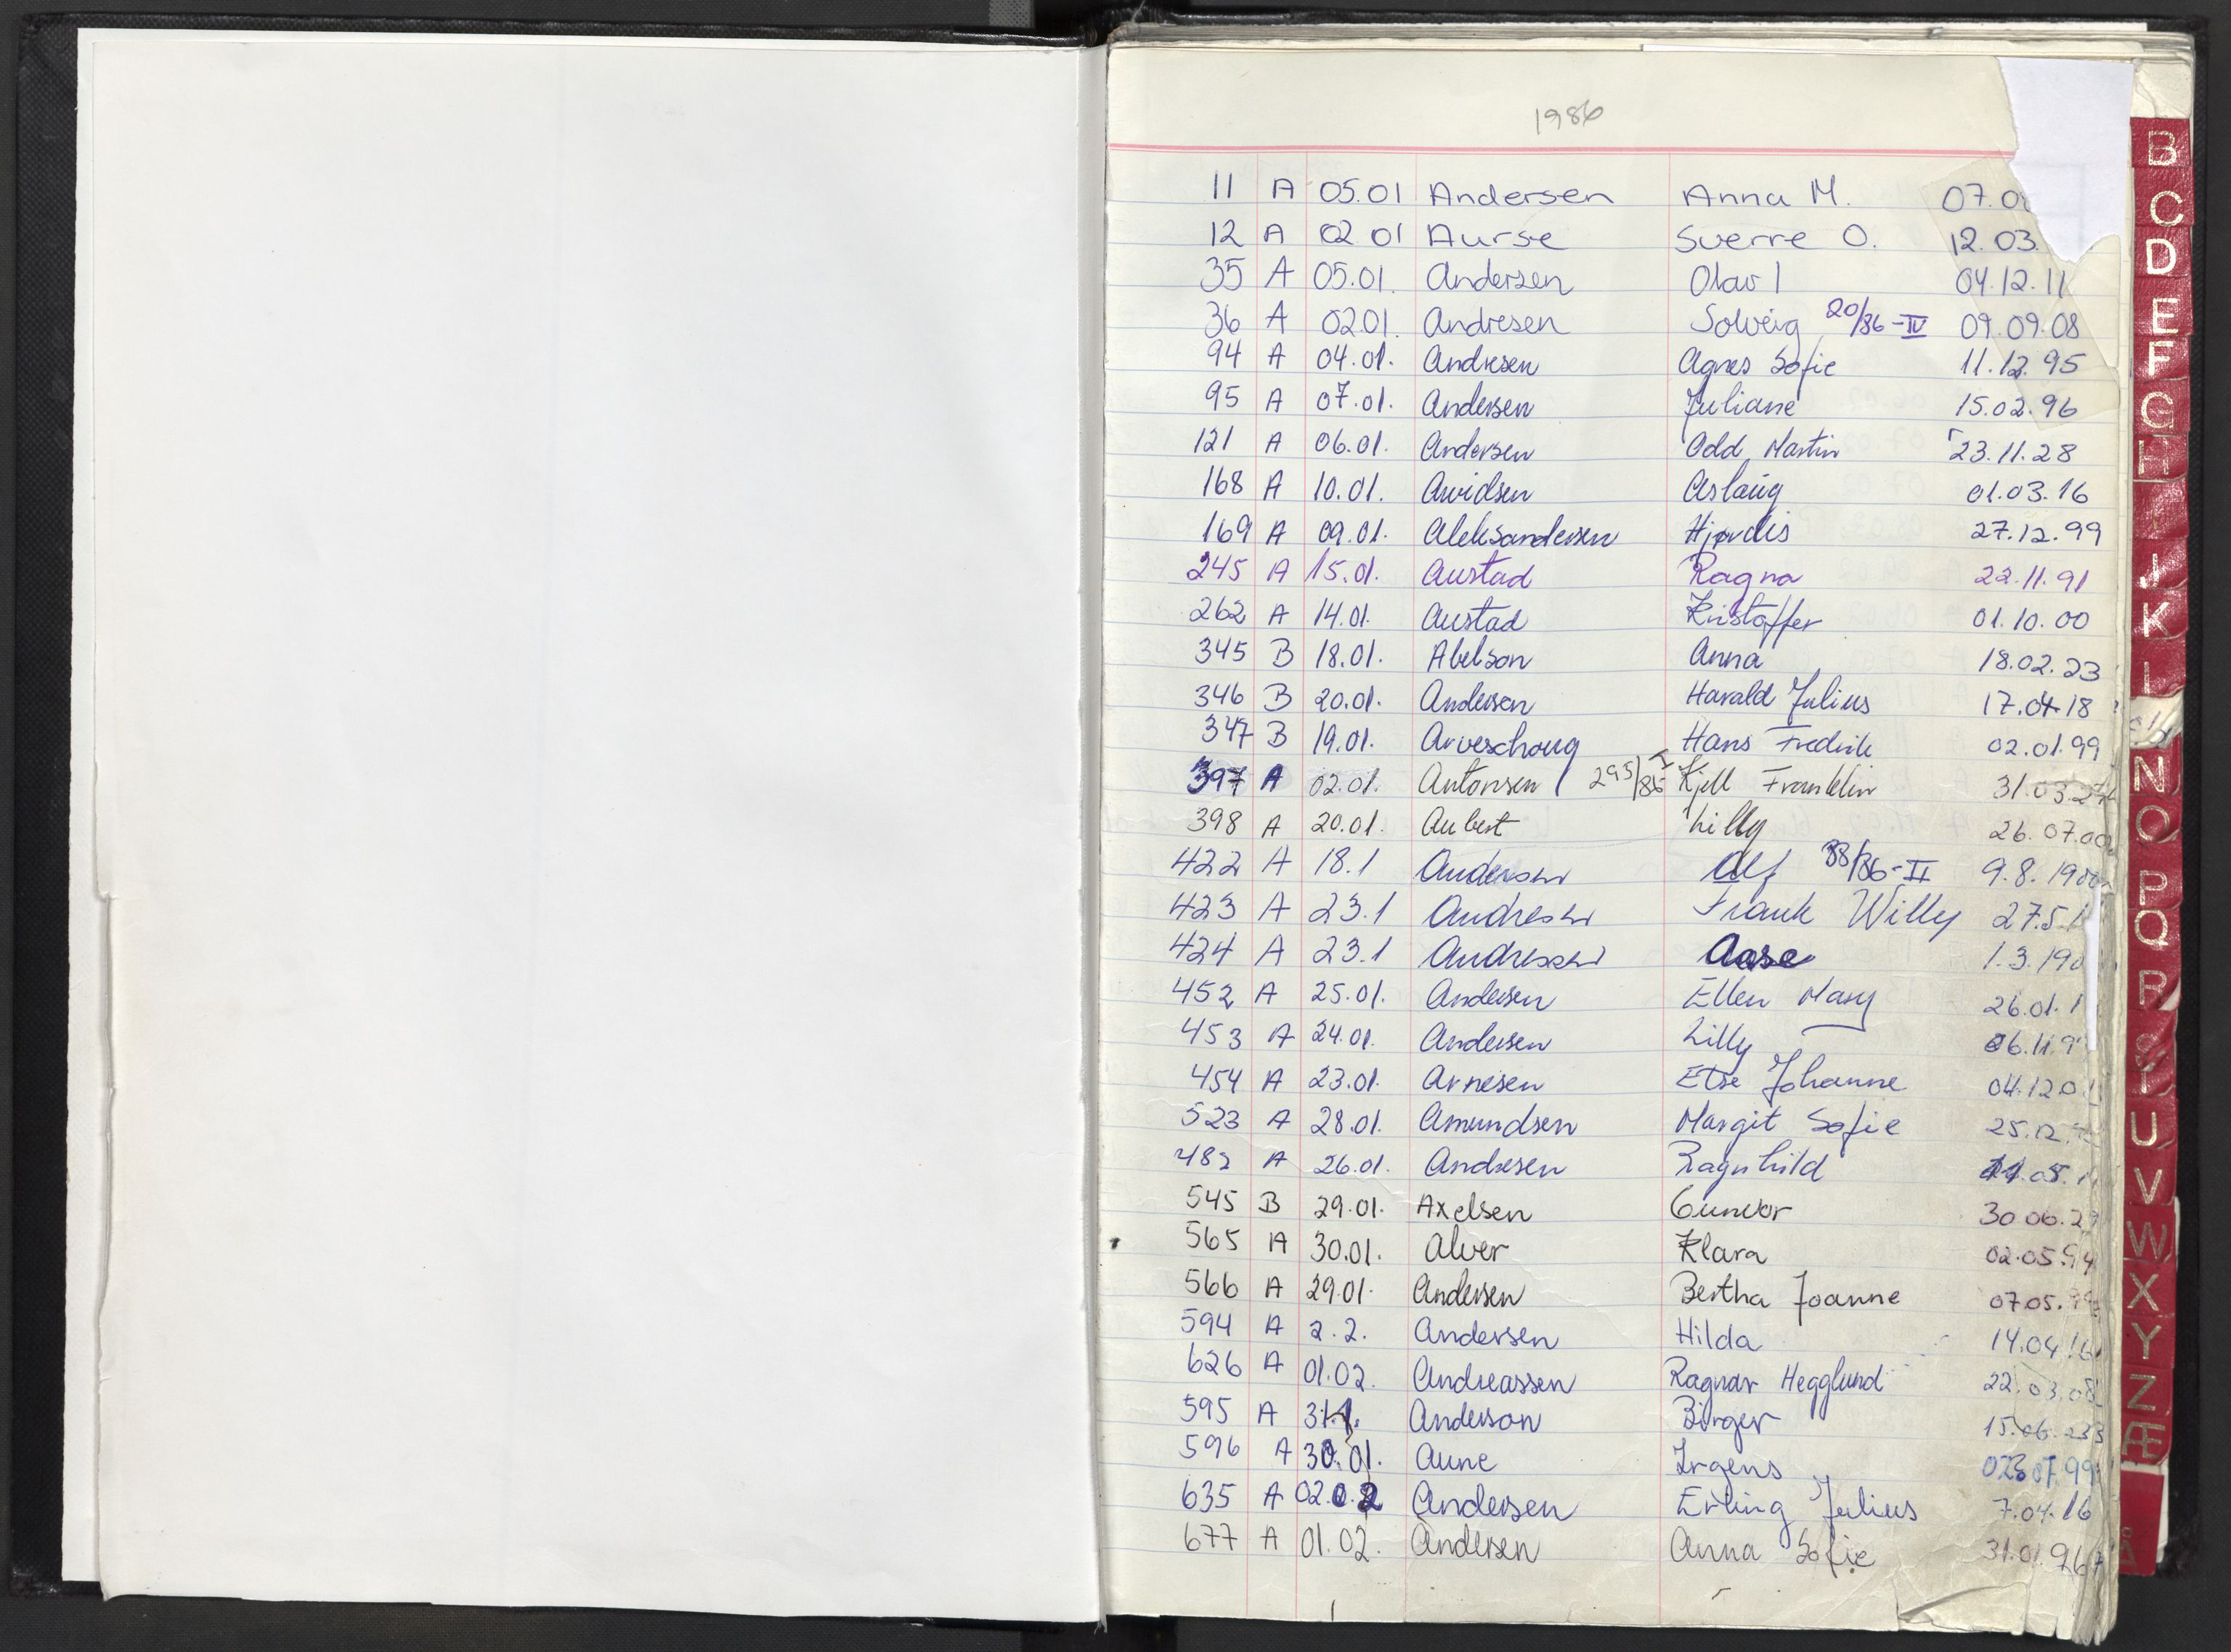 1986
11 A 05.01 Andersen Anna M. 07.0
12 A 02 01 Aurse Sverre O. 12.03.
35 A 05.01. Andersen Olav I 04.12.11
36 A 02.01. Andresen Solveig 20/86-IV 09.09.08
94 A 04.01. Andresen Agnes Sofie 11.12.95
95 A 07.01. Andersen Juliane 15.02.96
121 A 06.01. Andersen Odd Martin 23.11.28
168 A 10.01. Arvidsen Aslaug 01.03.16
169 A 09.01. Aleksandersen Hjørdis 27.12.99
245 A 15.01. Austad Ragna 22.11.91
262 A 14.01. Austad Kristoffer 01.10.00
345 B 18.01. Abelson Anna 18.02.23
346 B 20.01. Andersen Harald Julius 17.04.18
347 B 19.01. Arveschoug Hans Fredrik 02.01.99
397 A 02.01. Antonsen 295/86 I Kjell Franklin 31.03.27
398 A 20.01. Aubert Lilly 26.07.00
422 A 18.1 Andersen Alf 38/86-II 9.8.1900
423 A 23.1 Andresen Frank Willy 27.5.1
424 A 23.1 Andressen Aase 1.3.190
452 A 25.01. Andersen Ellen Mary 26.01.1
453 A 24.01. Andersen Lilly 06.11.9
454 A 23.01. Arnesen Else Johanne 04.12.0
523 A 28.01. Amundsen Margit Sofie 25.12.
482 A 26.01. Andresen Ragnhild 11.05.1
545 B 29.01. Axelsen Gunvor 30 06.29
565 A 30.01. Alver Klara 02.05.94
566 A 29.01. Andersen Bertha Joanne 07.05.
594 A 2.2. Andersen Hilda 14.04.16
626 A 01.02. Andreassen Ragnar Hegglund 22.03.08
595 A 31.1. Anderson Birger 15.06.
596 A 30.01. Aune Irgens 07.99
635 A 02.02 Andersen Erling Julius 7.04.16
677 A 01.02. Andersen Anna Sofie 31.01.96
B
C
D
E
F
G
H
J
K
L
N
O
P
Q
R
S
T
U
V
W
X
Y
Z
Æ
Å